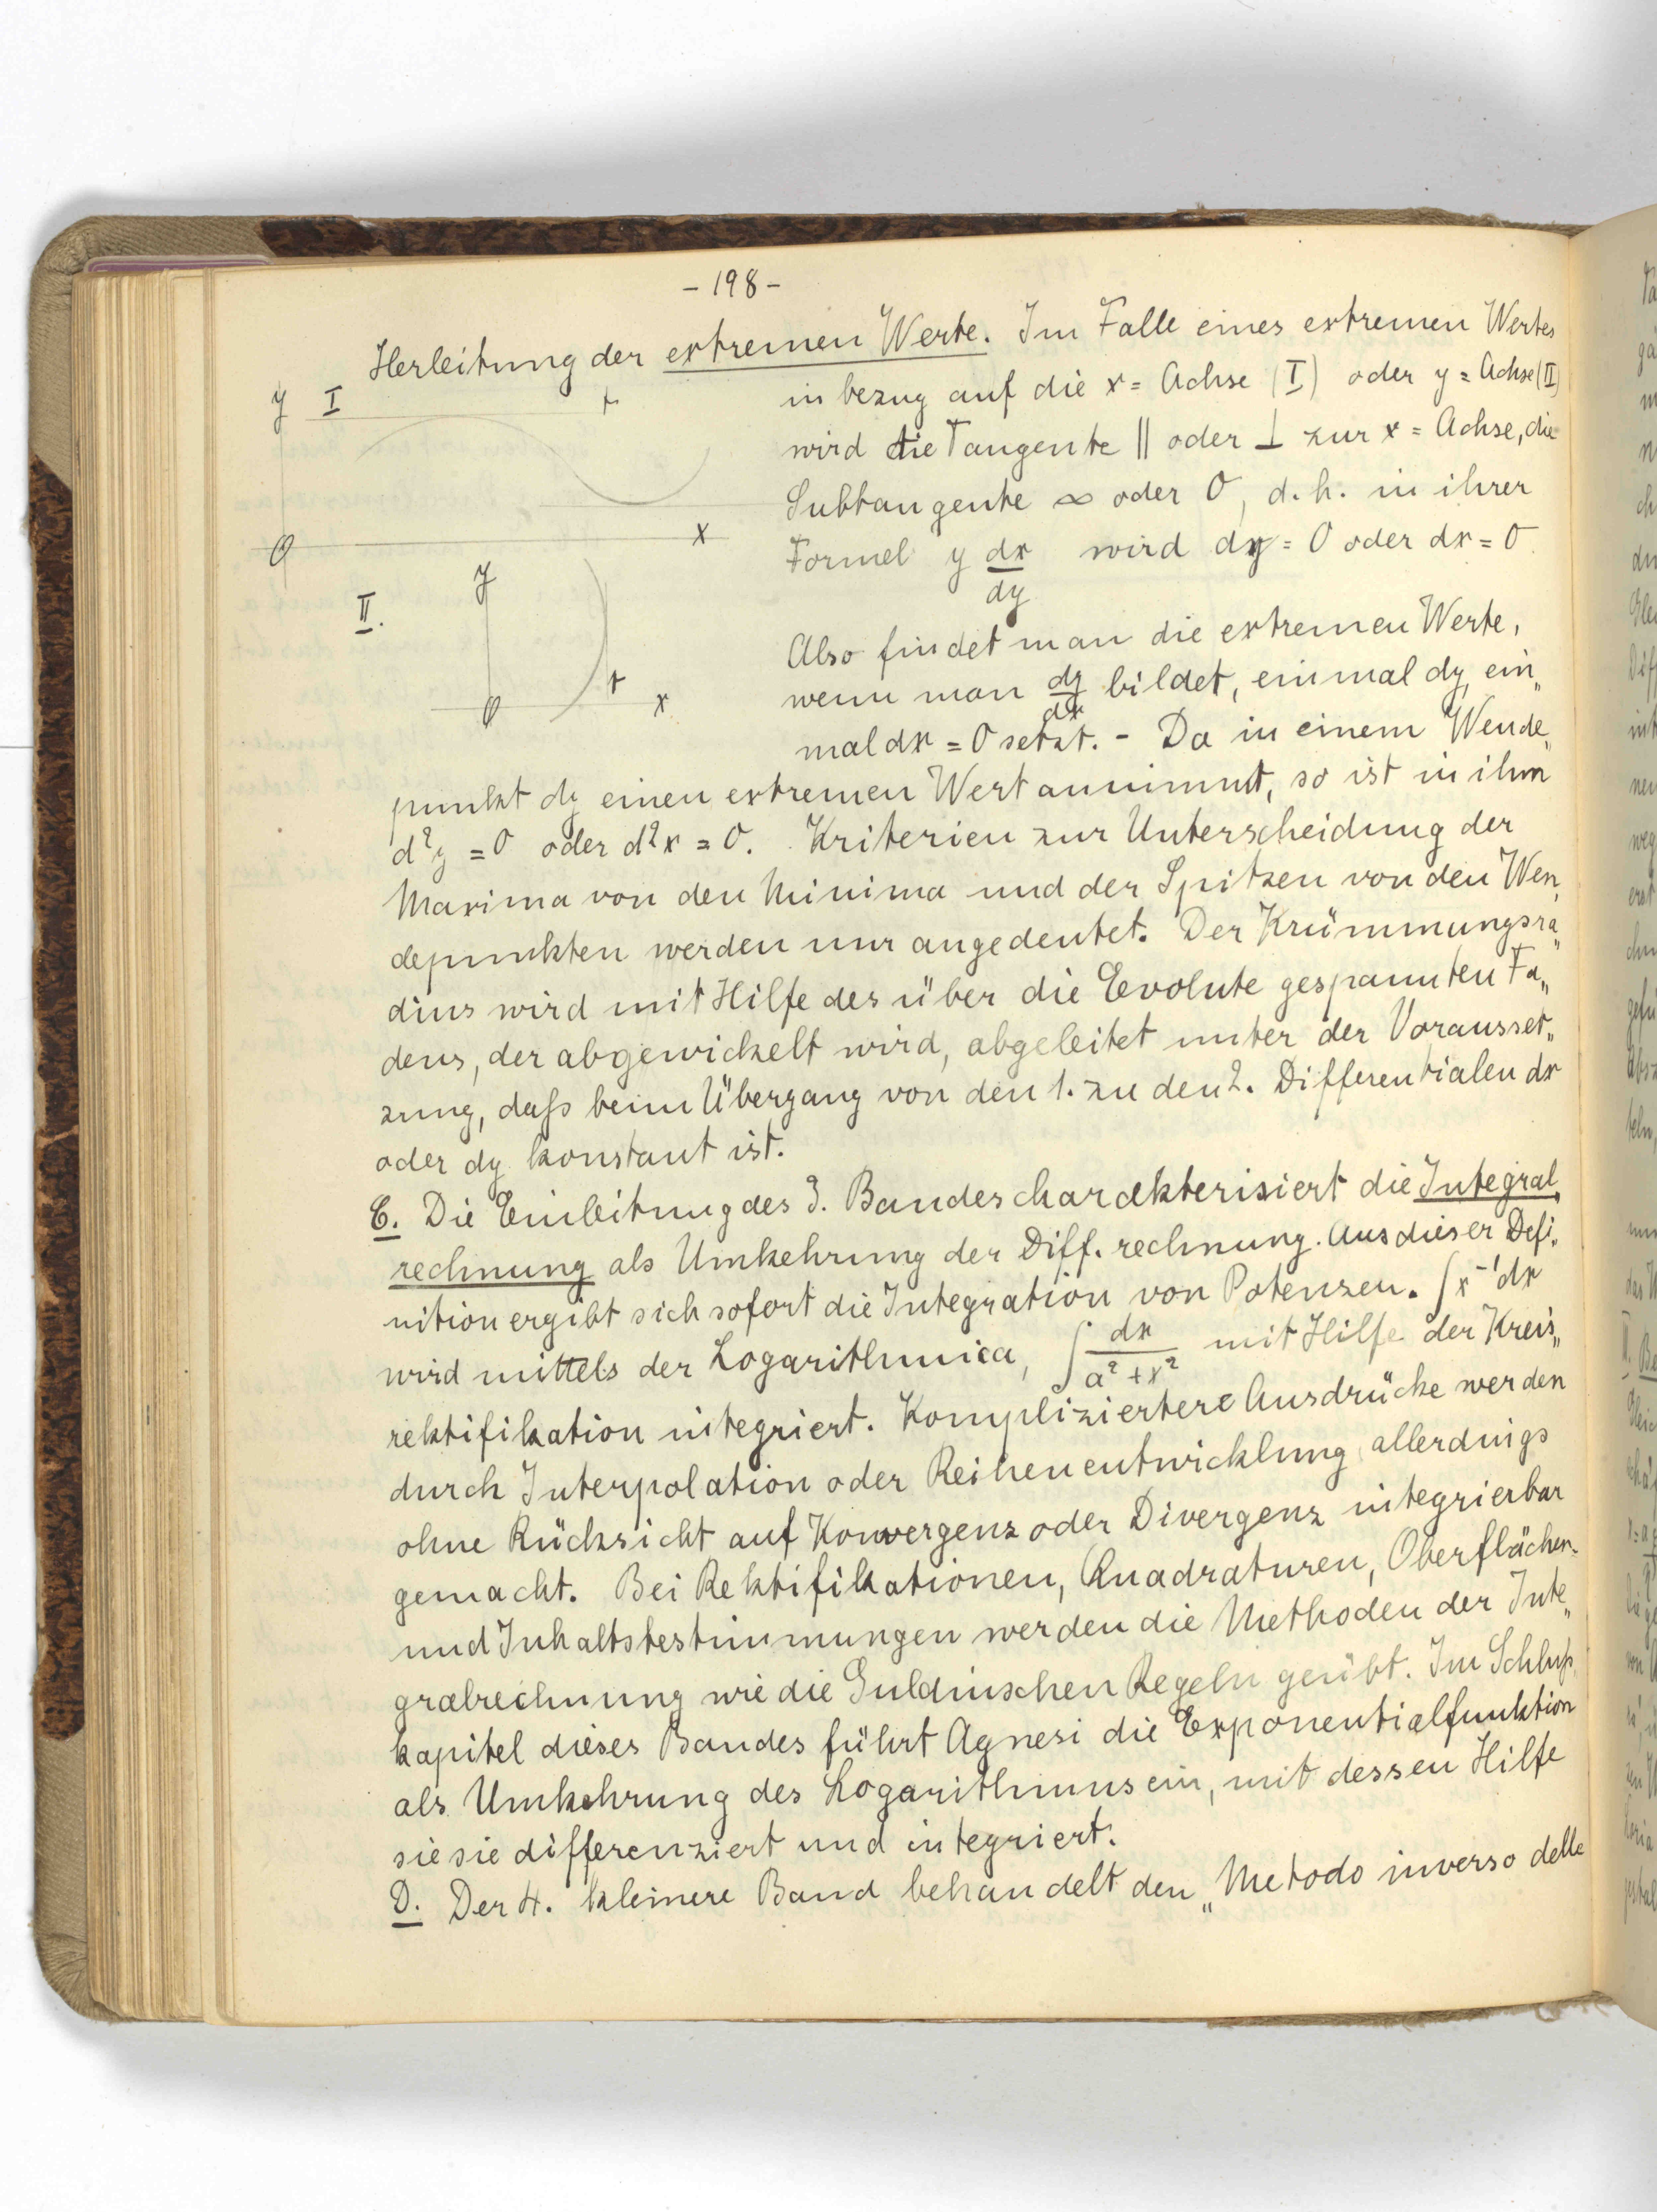 - 198 -
Herleitung der extremen Werte. Im Falle eines extremen Wertes
in bezug auf die x = Achse (I) oder y = Achse (II)
wird die Tangente || oder ⊥ zur x = Achse, die
Subtangente ∞ oder 0, d. h. in ihrer
Formel y dx/dy wird dy = 0 oder dx = 0.
y I t
0 x
II. y
t
0 x
Also findet man die extremen Werte,
wenn man dy/dx bildet, einmal dy, ein„
mal dx = 0 setzt. - Da in einem Wende„
punkt dy einen extremen Wert annimmt, so ist in ihm
d²y = 0 oder d²x = 0. Kriterien zur Unterscheidung der
Maxima von den Minima und der Spitzen von den Wen„
depunkten werden nur angedeutet. Der Krümmungsra„
dius wird mit Hilfe des über die Evolute gespannten Fa„
dens, der abgewickelt wird, abgeleitet unter der Vorausset„
zung, daß beim Übergang von den 1. zu den 2. Differentialen dx
oder dy konstant ist.
C. Die Einleitung des 3. Bandes charakterisiert die Integral„
rechnung als Umkehrung der Diff. rechnung. Aus dieser Defi„
nition ergibt sich sofort die Integration von Potenzen. ∫x⁻¹dx
wird mittels der Logarithmica, ∫dx/(a² + x²) mit Hilfe der Kreis„
rektifikation integriert. Kompliziertere Ausdrücke werden
durch Interpolation oder Reihenentwicklung allerdings
ohne Rücksicht auf Konvergenz oder Divergenz integrierbar
gemacht. Bei Rektifikationen, Quadraturen, Oberflächen-
und Inhaltsbestimmungen werden die Methoden der Inte„
gralrechnung wie die Guldinschen Regeln geübt. Im Schluß„
kapitel dieses Bandes führt Agnesi die Exponentialfunktion
als Umkehrung des Logarithmus ein, mit dessen Hilfe
sie sie differenziert und integriert.
D. Der 4. kleinere Band behandelt den „Metodo inverso delle